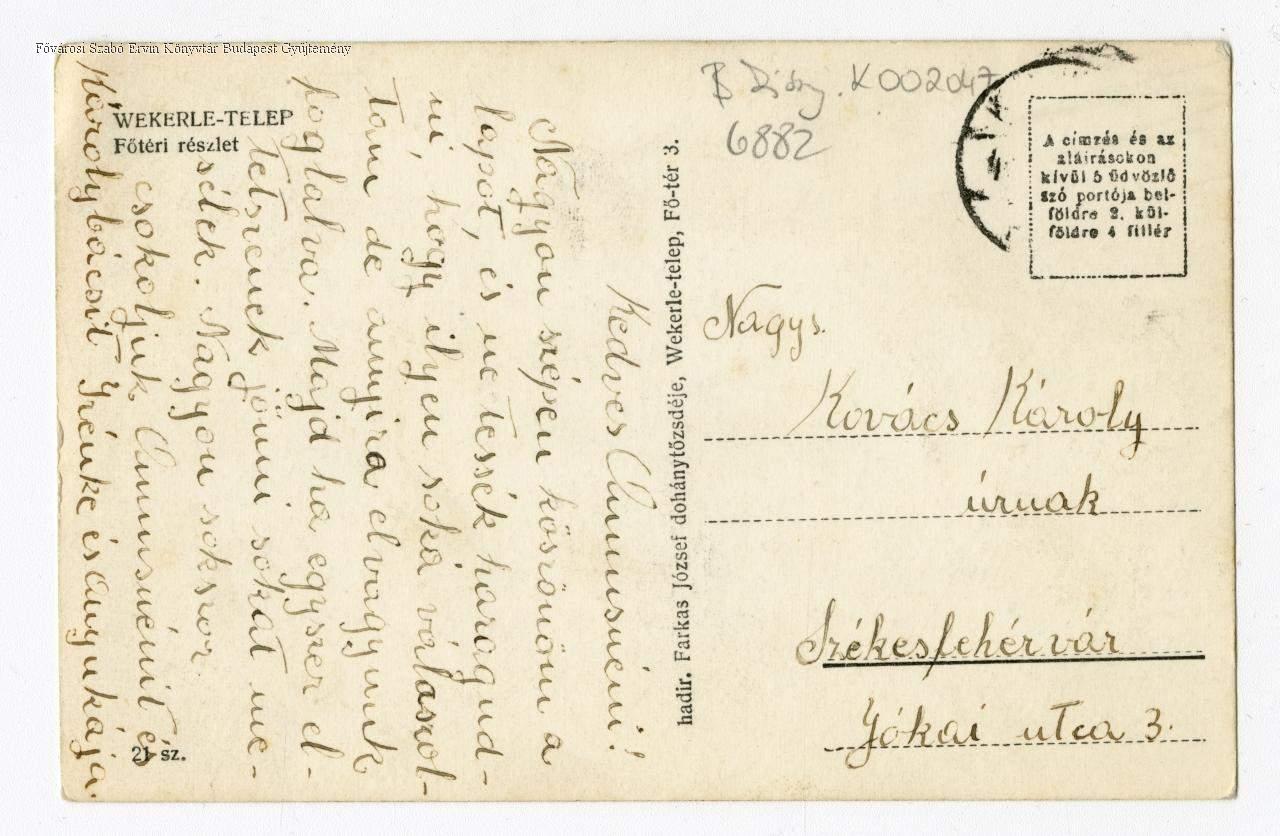 Fővárosi Szabó Ervin Könyvtár Budapest Gyűjtemény
WEKERLE-TELEP
Főtéri részlet
Kedves Annusnéni!
Nagyon szépen köszönöm a
lapot, és ne tessék haragud-
ni, hogy ilyen soká válaszol-
tam de annyira elvagyunk
foglalva. Majd ha egyszer el-
tetszenek jönni sokat me-
sélek. Nagyon sokszor
csokoljuk Annusnénit és
Károlybácsit Irénke és Anyukája.
21 sz.
hadir. Farkas József dohánytőzsdéje, Wekerle-telep, Fő-tér 3.
B K 002047
6882
A címzés és az
aláírásokon
kívül 5 üdvözlő
szó portója bel-
földre 2. kül-
földre 4 fillér
Nagys.
Kovács Károly
úrnak
Székesfehérvár
Jókai utca 3.